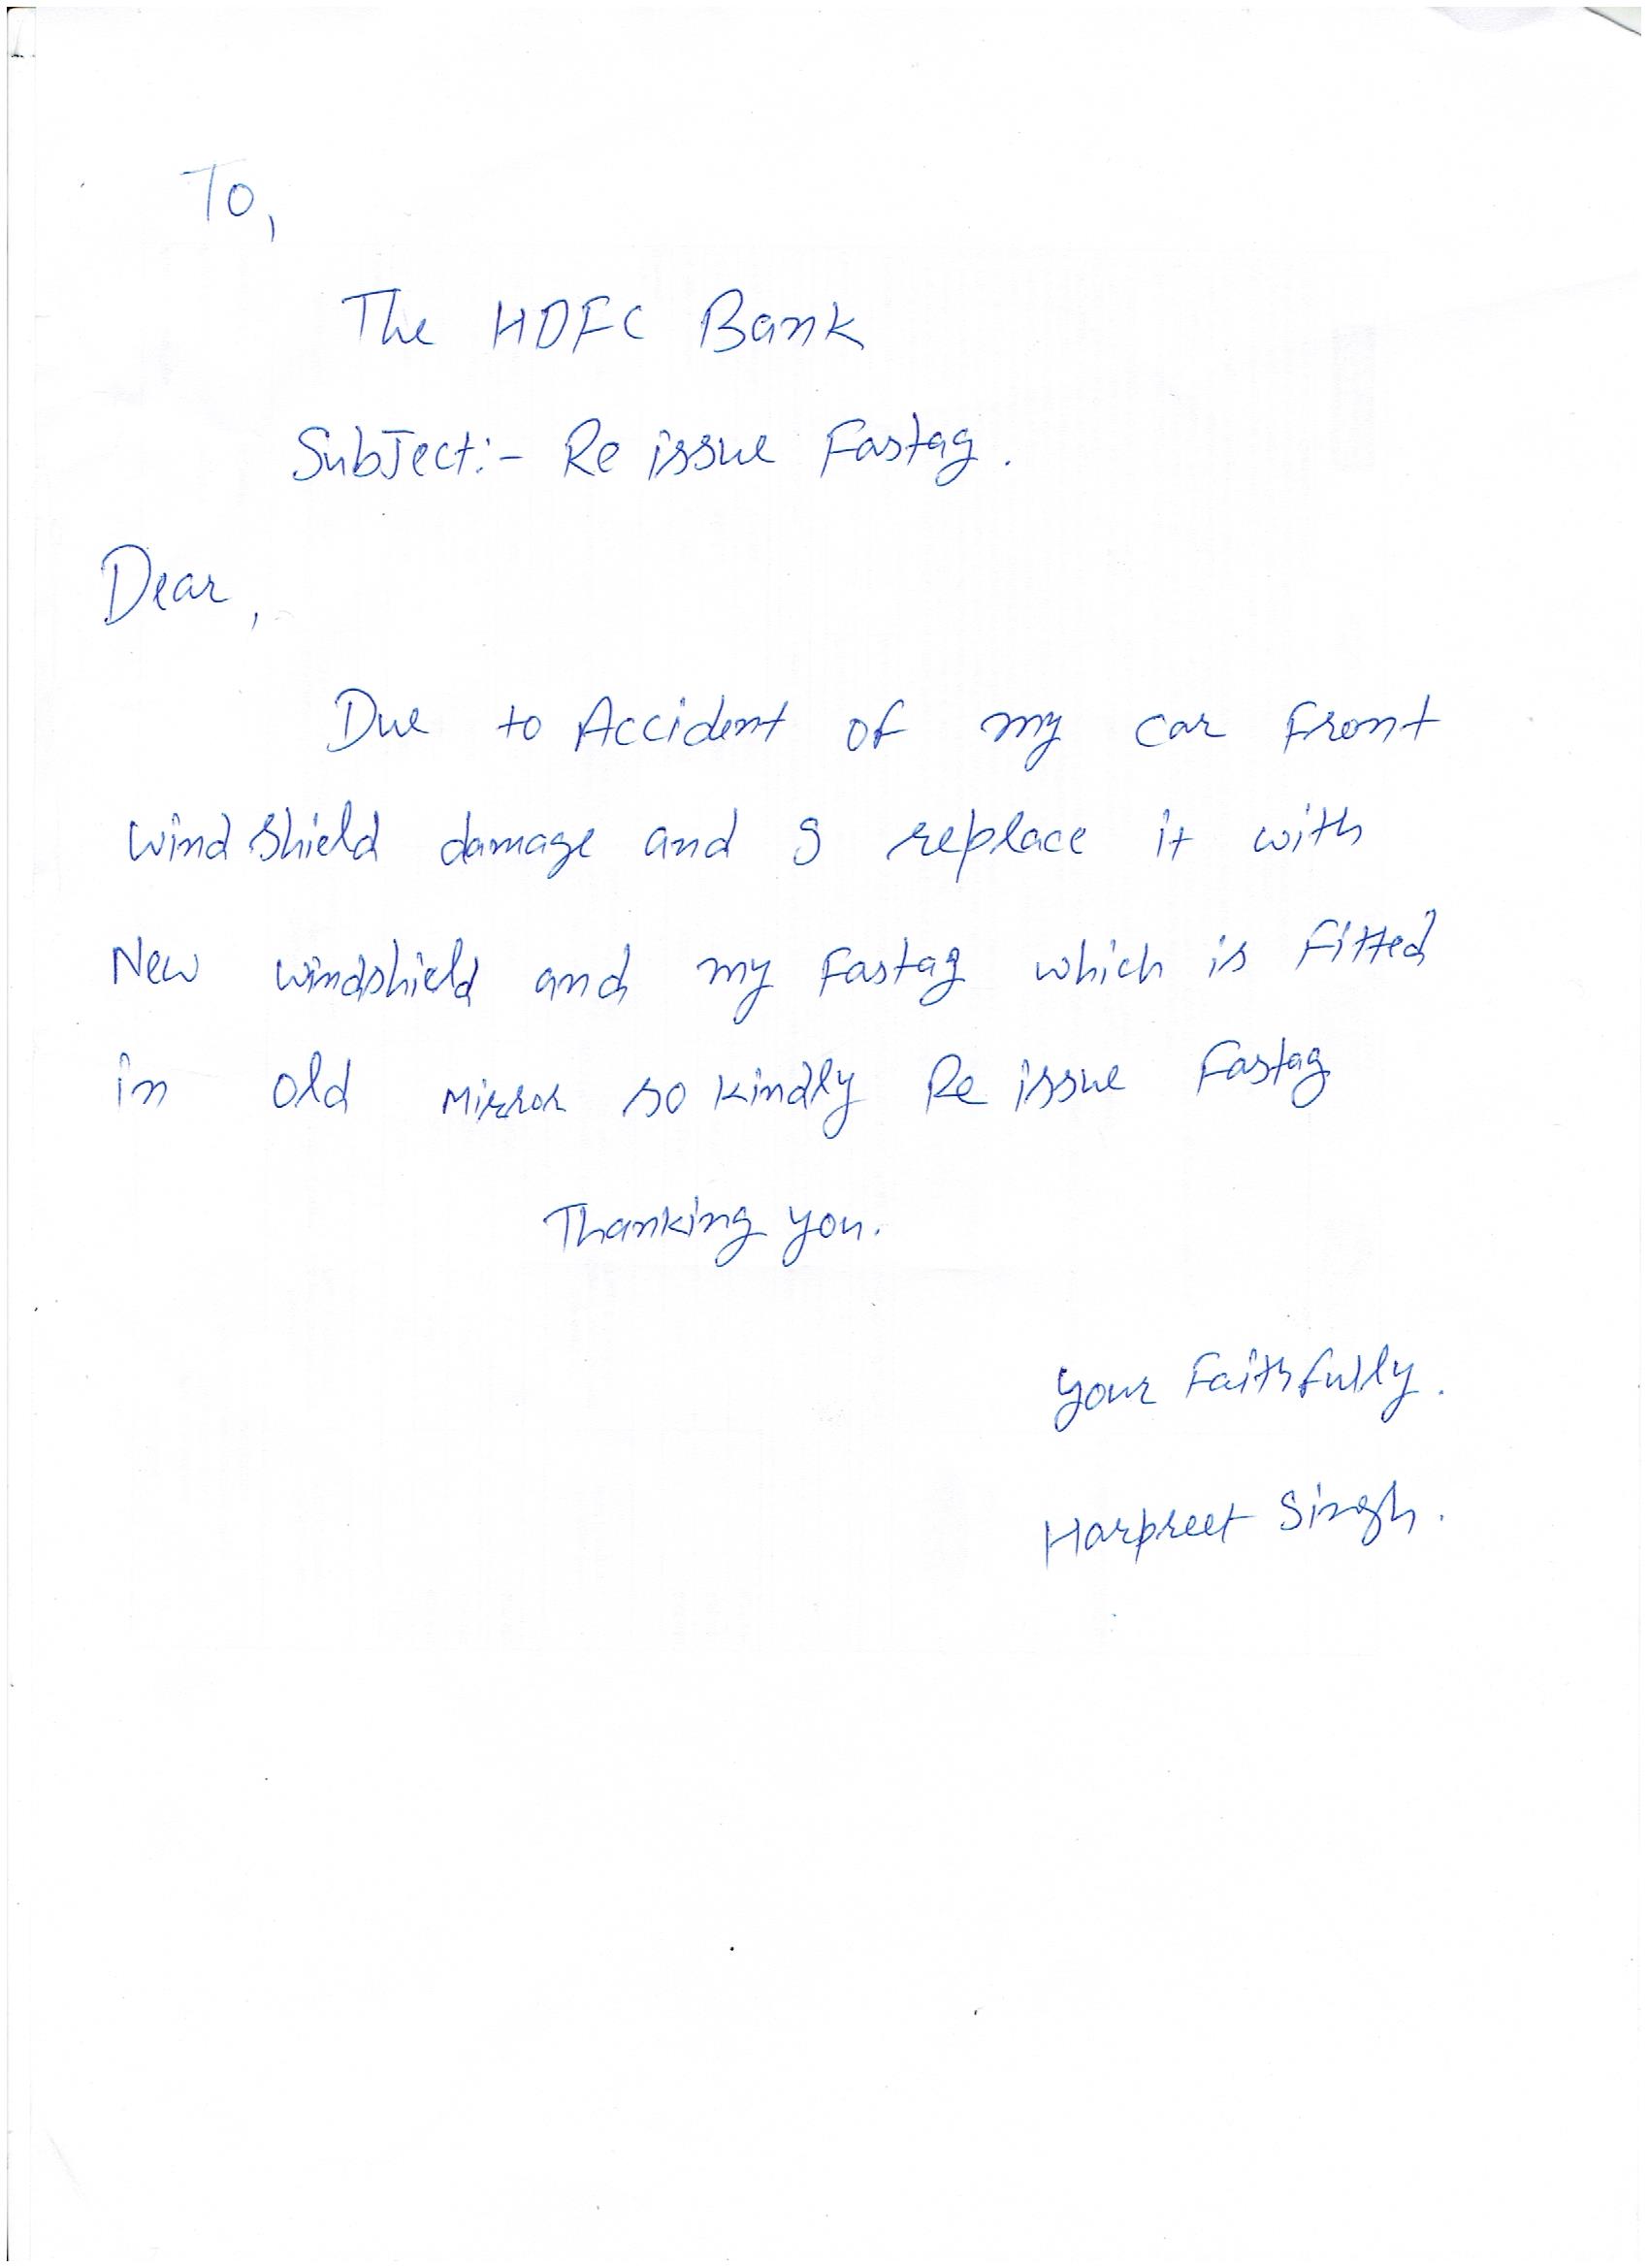 To,
The HDFC Bank
Subject:- Re issue Fastag.
Dear,
Due to Accident of my car front
windshield damage and I replace it with
New windshield and my Fastag which is Fitted
in old Mirror so kindly Re issue Fastag
Thanking you.
your Faithfully.
Harpreet Singh.